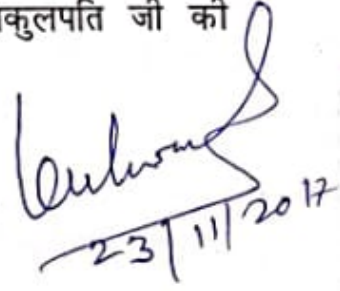 कुलपति जी को
23/11/2017